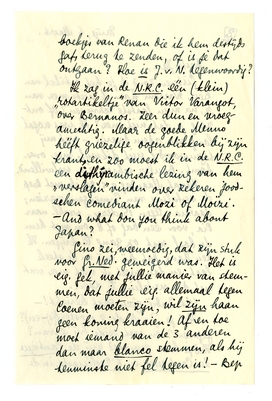 boekjes van Renan die ik hem destijds
gaf, terug te zenden, of is je dat
ontgaan? Hoe is J. v. N. tegenwoordig?
Ik zag in de N.R.C. één (klein)
"rotartikeltje" van Victor Varangot,
over Bernanos. Zeer dun en vroeg-
amechtig. Maar de goede Menno
heeft griezelige oogenblikken bij zijn
krant, en zoo moest ik in de N.R.C.
een dithyrambische lezing van hem
("verslagen") vinden over zekeren Jood-
schen comediant Mozi of Moizi.
– And what do you think about
Japan?
Gino zei, weemoedig, dat zijn stuk
voor Gr. Ned. geweigerd was. Het is
eig. gek, met jullie manie van stem-
men, dat jullie eig. allemaal tegen
Coenen moeten zijn, wil zijn haan
geen koning kraaien! Af en toe
moet iemand van de 3 anderen
dan maar blanco stemmen, als hij
tenminste niet fel tegen is! – Bep